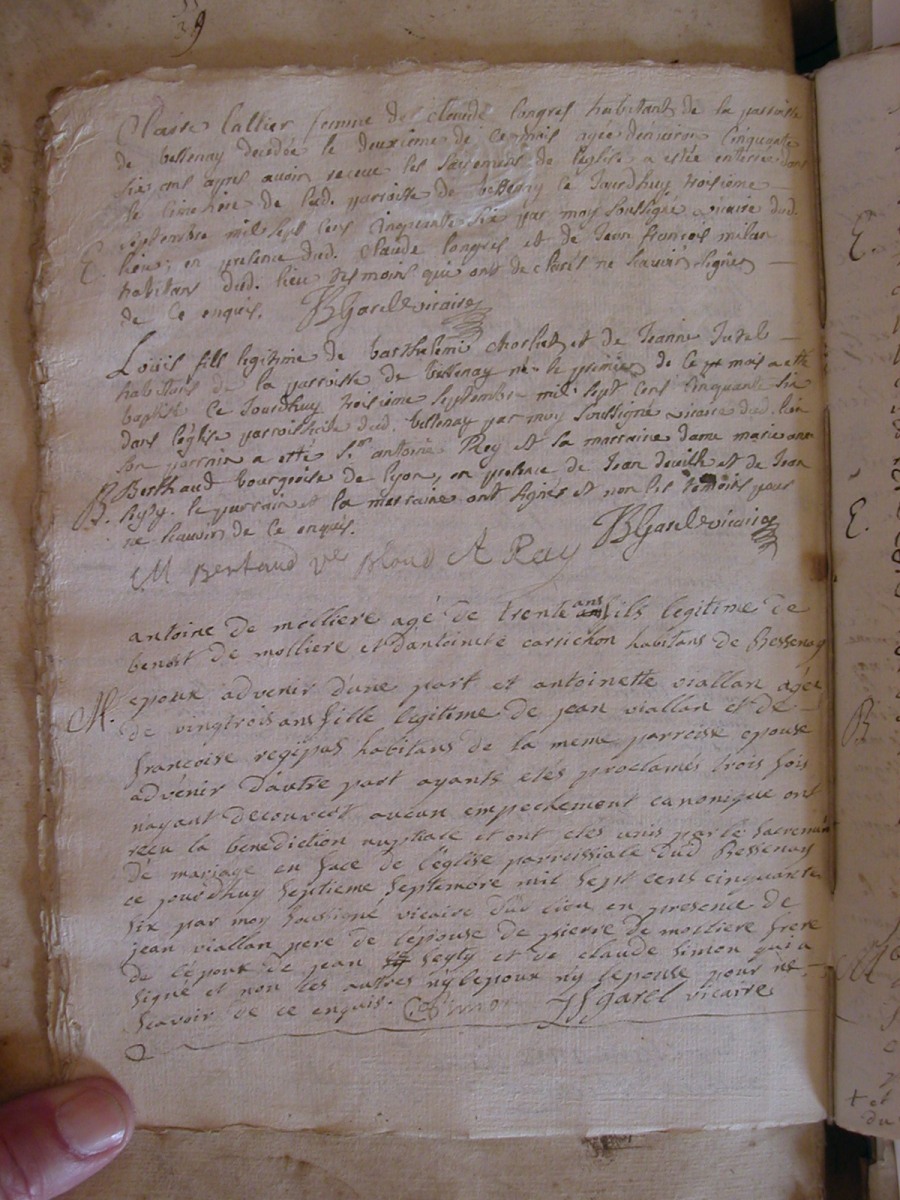 Claire Callier femme de Claude Congres habitant de la parroisse
de bessenay decedée le deuxieme de ce mois agée denviron Cinquante
Six ans apres avoir receue les Sacrements de l'eglise a estée enterrée dans
le Cimetiere de lad. parroisse de bessenay ce Jourdhuy troisieme
E. Septembre mil Sept Cens Cinquante Six par moy Soussigné vicaire dud.
lieu, en presence dud. Claude Congres et de Jean françois milan
habitans dud. lieu tesmoins qui ont declarés ne Scavoir Signer
de Ce enquis. BGarel vicaire
Loüis fils legitime de barthelemi Chochet et de Jeanne
habitans de la parroisse de bessenay né le premier de Ce pt mois a eté
baptisé Ce Jourdhuy troisieme Septembre mil Sept Cens Cinquante Six
dans l'eglise parroissiale dud. bessenay par moy Soussigné vicaire dud. lieu
Son parrain a etté Sr. antoine Rey et la marraine dame marie anne
B. Berthaud bourgeoise de lyon, en presence de Jean deville et de Jean
Syty. le parrain et la marraine ont Signés et non les temoins pour
ne Scavoir de Ce enquis.
BGarel vicaire
M Bertaud ve Bloud A Ray
antoine de molliere agé de trente ans fils legitime de
benoit de molliere et dantoinete carrichon habitans de Bessenay
M. epoux advenir d'une part et antoinette viallon agée
de vingtrois ans fille legitime de jean viallon et de
francoise regipas habitans de la meme parroise epouse
advenir D'autre part ayants etés proclamés trois fois
nayant decouvert aucun empechement canonique ont
recu la benediction nuptiale et ont etés unis par le Sacrement
de mariage en face de l'église parroissiale dud Bessenay
ce jourdhuy Septieme Septembre mil Sept cents cinquante
Six par moy Soussigné vicaire dud lieu en presence de
jean viallon pere de l'épouse de pierre de molliere frere
de l'époux de jean Seyty et de claude Simon qui a
Signé et non les autres ny lepoux ny lepouse pour ne
Scavoir de ce enquis. CSimon BGarel vicaire